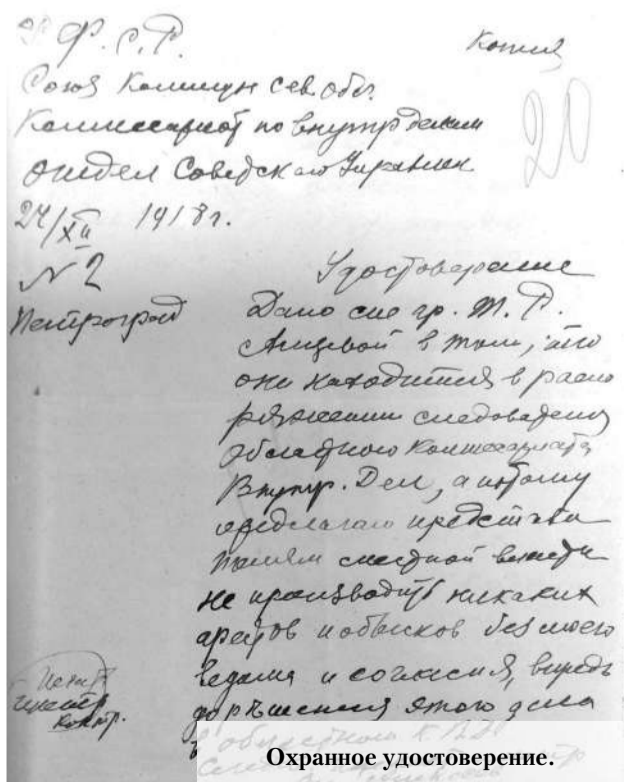 Ф. С. Р.
Копия
20
Союз Коммун Сев. Обл.
Комиссариат по внутр делам
отдел Советского Управлен
24/XII 1918 г.
N 2
Петроград
Удостоверение
Дано сие гр. М. Р.
в том, что
она находится в распо
ряжении следователя
областного Комиссариата
Внутр. Дел, а потому
предлагаю представи
телям местной власти
не производить никаких
арестов и обысков без моего
ведома и согласия, впредь
до решения этого дела
областного К.
Охранное удостоверение.